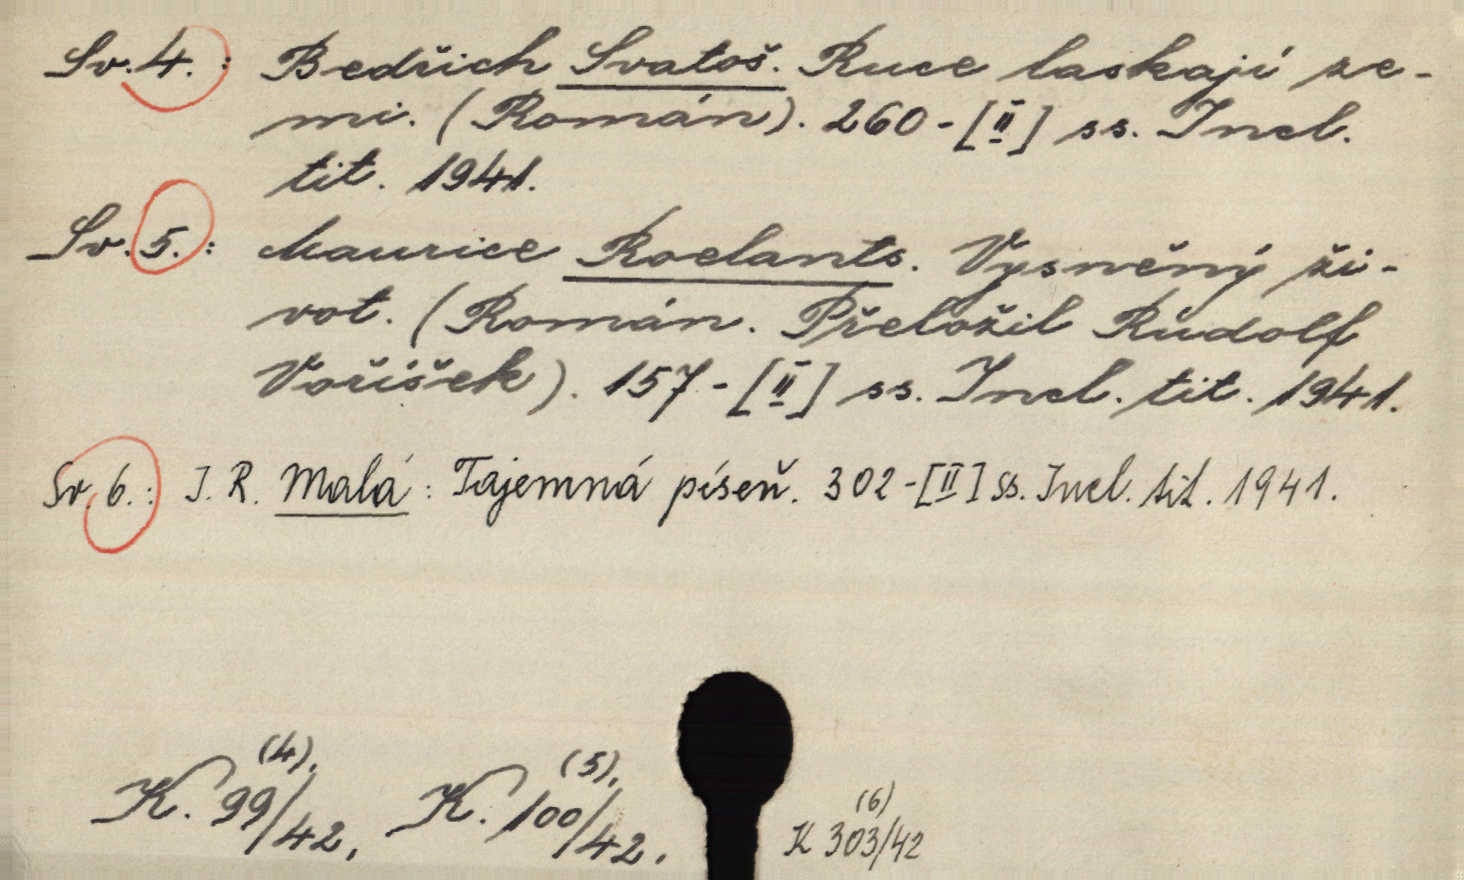 Sv. 4. : Bedřich Svatoš. Ruce laskají ze-
mi. (Román). 260-[II] ss. Incl.
tit. 1941.
Sv. 5. : Maurice Roelants. Vysněný ži-
vot. (Román. Přeložil Rudolf
Voříšek). 157-[II] ss. Incl. tit. 1941.
Sv. 6. : J. R. Malá : Tajemná píseň. 302-[II] ss. Incl. tit. 1941.
(4). (5). (6)
K. 99/42, K. 100/42. K 303/42